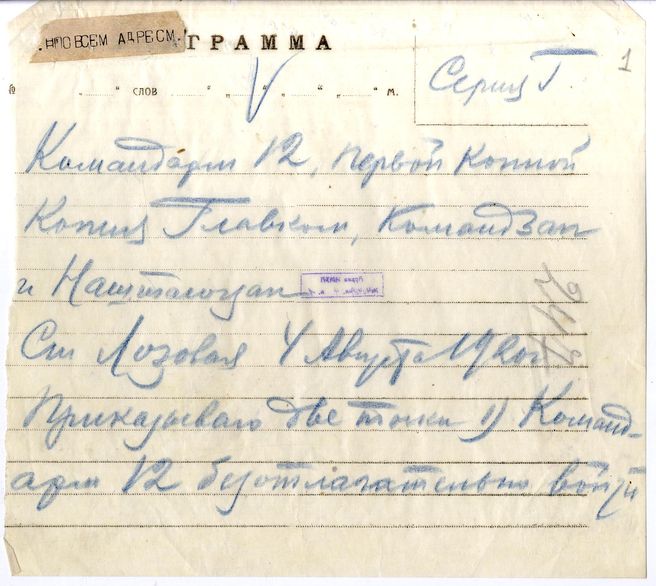 ПО ВСЕМ АДРЕСМ.
ГРАММА
1
Серия Г
„ “ СЛОВ „ “ „ “ М.
Командарм 12, первой Конной
Копия Главком, КомандЗап
и Наштаюгзап
Ст Лозовая 4 Августа 1920г
Приказываю две точки 1) Команд-
арм 12 безотлагательно войти